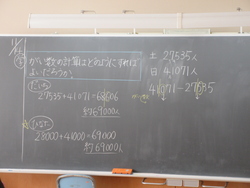 がい数の計算はどのようにすれば
よいだろうか。
27535+41071=68606
約69000人
28000+41000=69000
約69000人
土 27535人
日 41071人
41071-27535